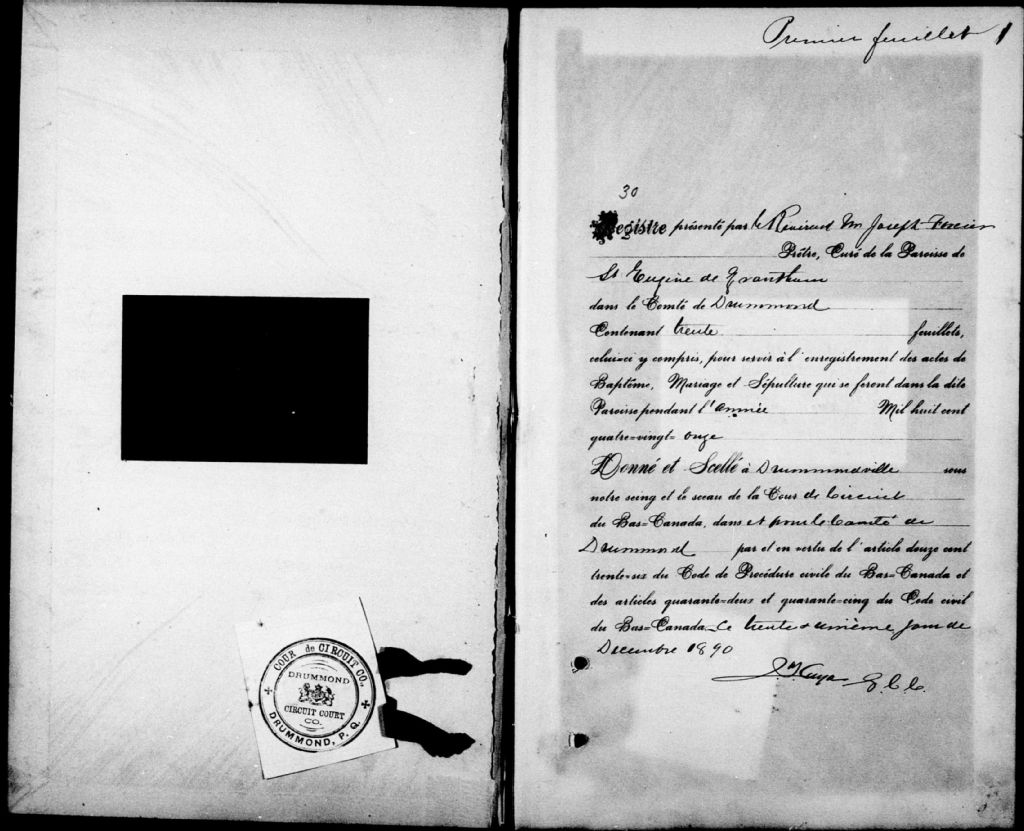 COUR de CIRCUIT CO.
DRUMMOND
CIRCUIT COURT
CO.
DRUMMOND, P. Q.
Premier feuillet 1
30
Registre présenté par le Révérend Mr Joseph
Prêtre, Curé de la Paroisse de
St Eugène de Grantham
dans le Comté de Drummond
Contenant trente feuillets,
celui-ci y compris, pour servir à l'enregistrement des actes de
Baptême, Mariage et Sépulture qui se feront dans la dite
Paroisse pendant l'année Mil huit cent
quatre-vingt-onze
Donné et Scellé à Drummondville sous
notre seing et le sceau de la Cour de Circuit
du Bas-Canada, dans et pour le Comté de
Drummond par et en vertu de l'article douze cent
trente-six du Code de Procédure civile du Bas-Canada et
des articles quarante-deux et quarante-cinq du Code civil
du Bas-Canada. Ce trente & unième jour de
Décembre 1890
G.C.C.